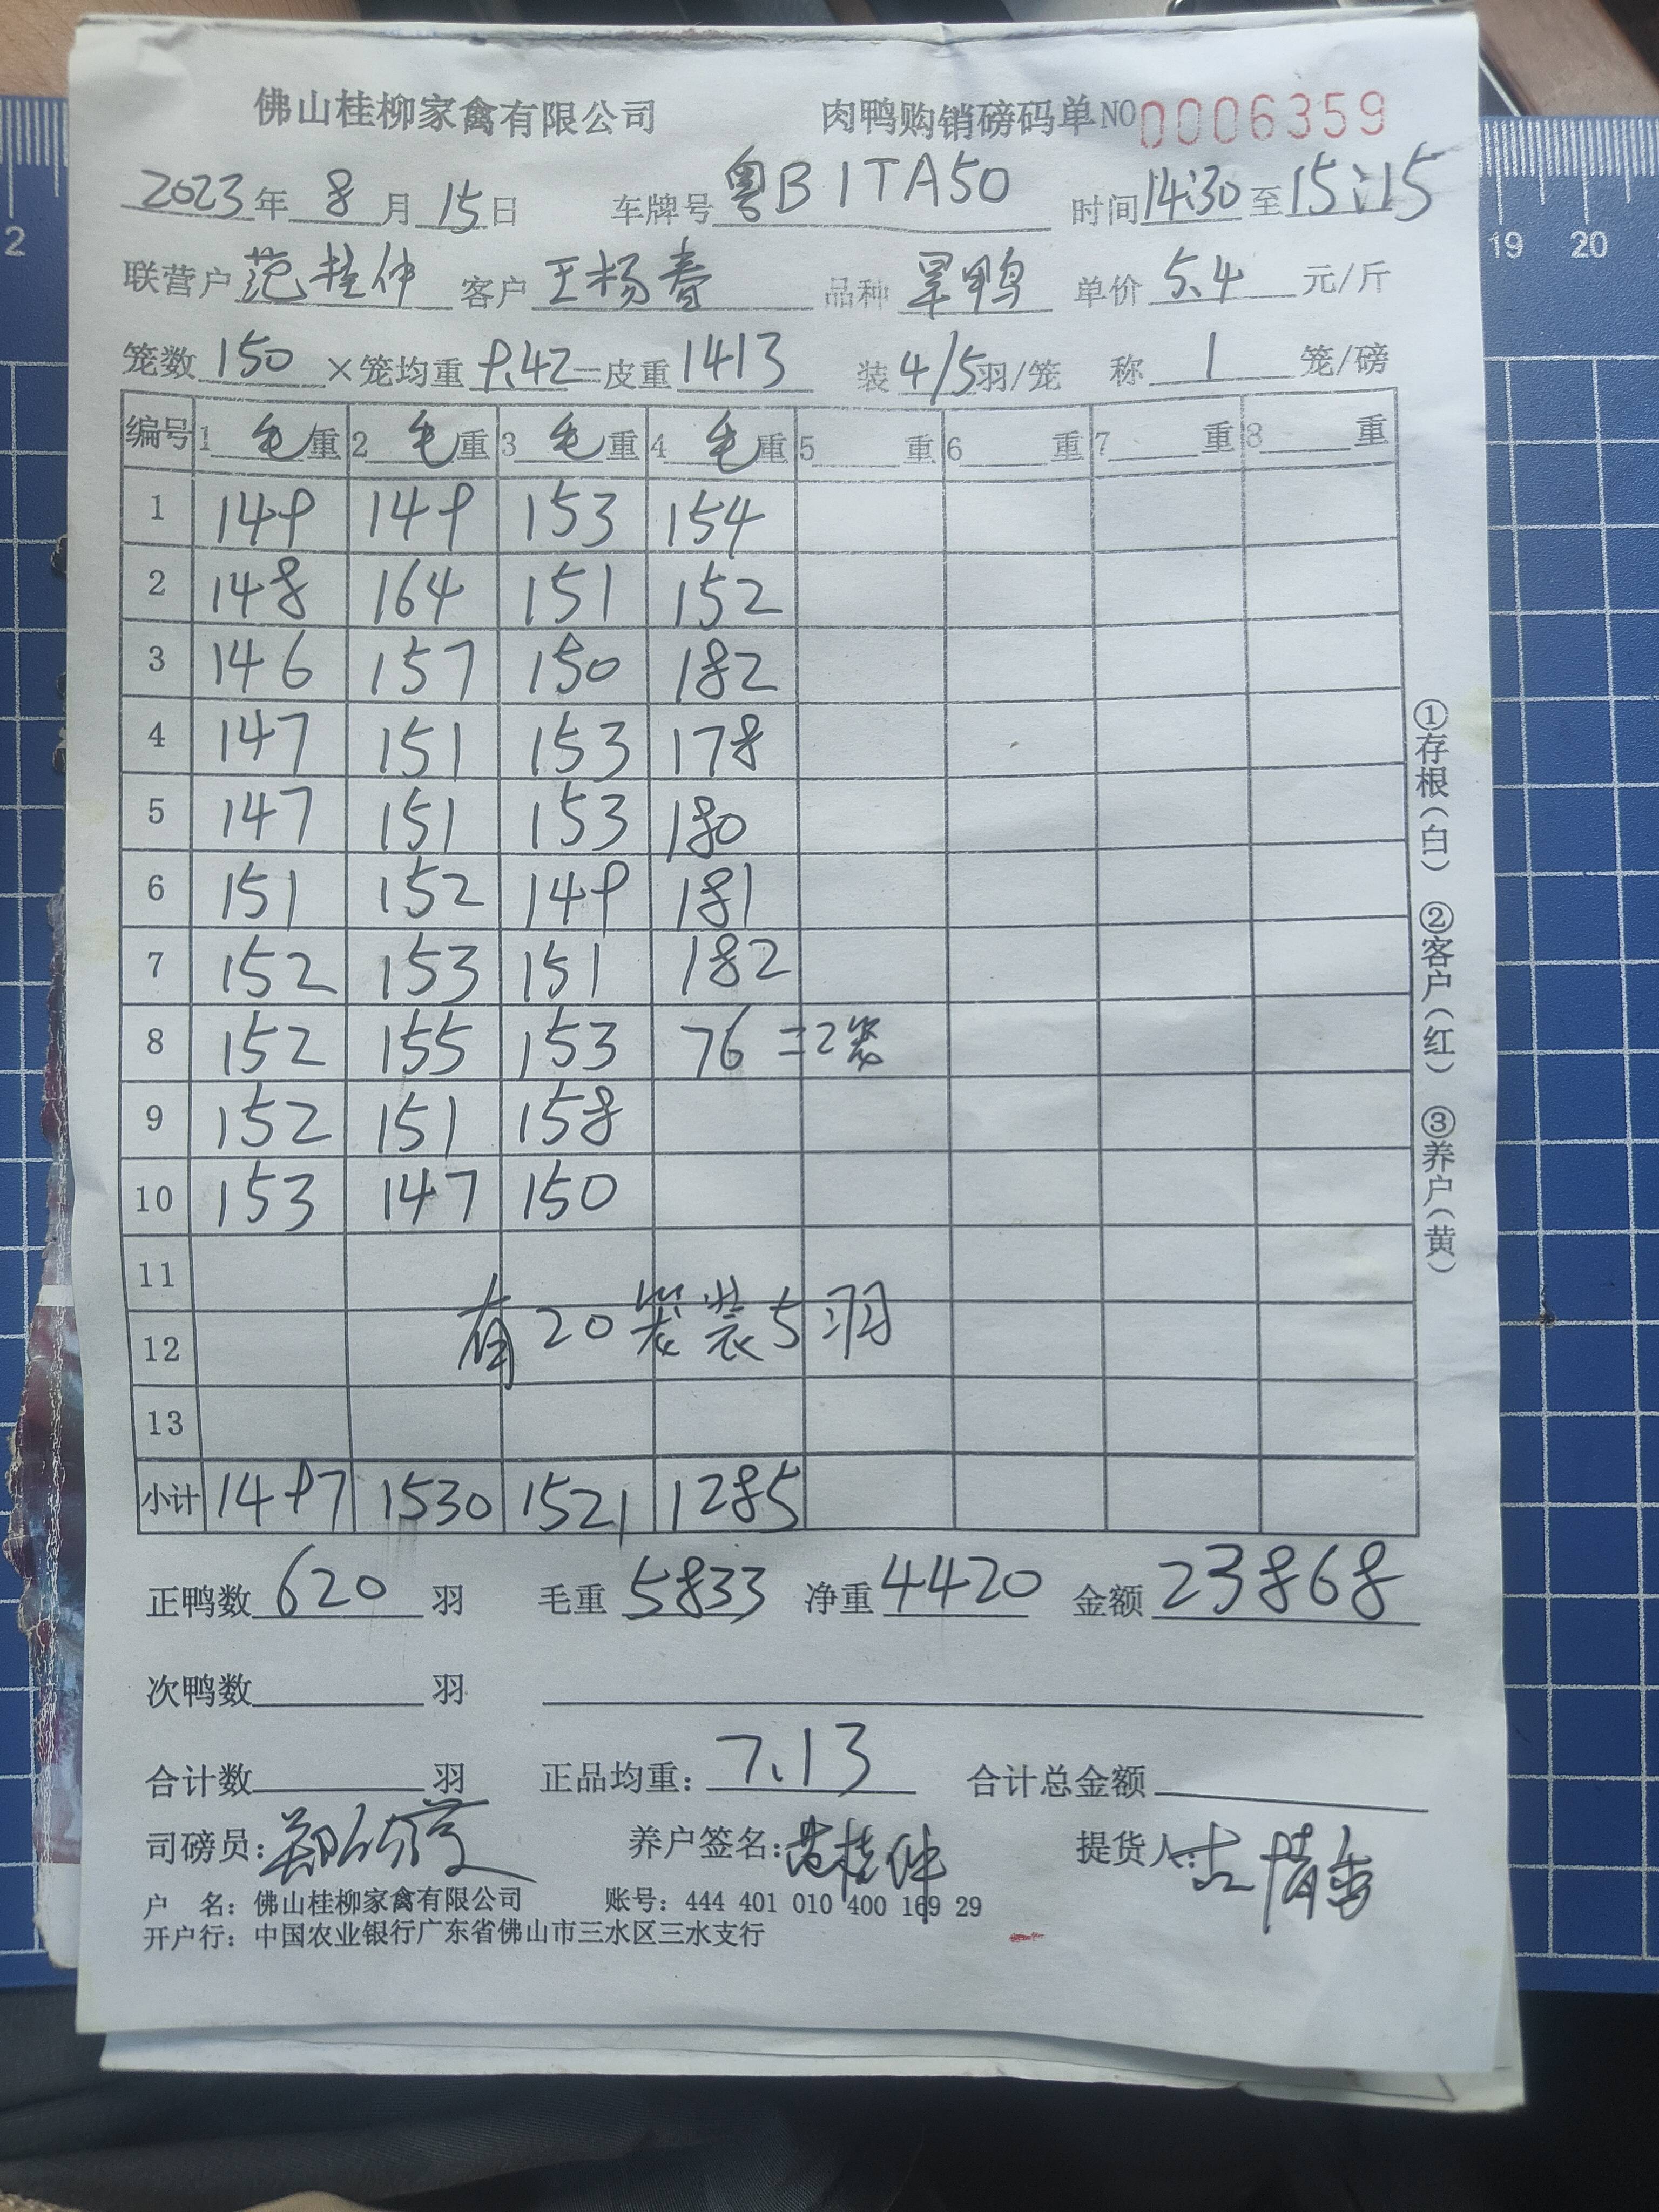 佛山桂柳家禽有限公司 肉鸭购销磅码单 NO 0006359
2023年 8月 15日 车牌号 粤B1TA50 时间 14:30 至 15:15
联营户 范桂伸 客户 王杨春 品种 旱鸭 单价 5.4 元/斤
笼数 150 ×笼均重 9.42 =皮重 1413 装 4/5 羽/笼 称 1 笼/磅
编号 1 毛 重 2 毛 重 3 毛 重 4 毛 重 5 重 6 重 7 重 8 重
1 149 149 153 154
2 148 164 151 152
3 146 157 150 182
4 147 151 153 178
5 147 151 153 180
6 151 152 149 181
7 152 153 151 182
8 152 155 153 76 =2笼
9 152 151 158
10 153 147 150
11
有20笼装5羽
12
13
小计 1497 1530 1521 1285
①存根(白) ②客户(红) ③养户(黄)
正鸭数 620 羽 毛重 5833 净重 4420 金额 23868
次鸭数 羽
合计数 羽 正品均重: 7.13 合计总金额
司磅员: 养户签名: 范桂伸 提货人:
户 名: 佛山桂柳家禽有限公司 账号: 444 401 010 400 169 29
开户行: 中国农业银行广东省佛山市三水区三水支行
2 19 20